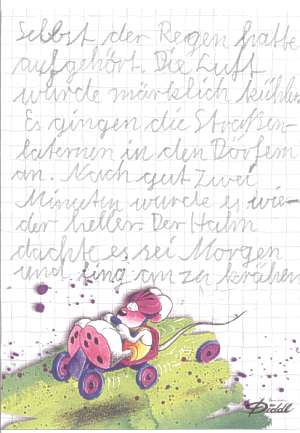 Selbst der Regen hatte
aufgehört. Die Luft
wurde märklich kühler
Es gingen die Straßen-
laternen in den Dörfern
an. Nach gut zwei
Minuten wurde es wie-
der heller. Der Hahn
dachte es sei Morgen
und fing an zu krähen
Diddl